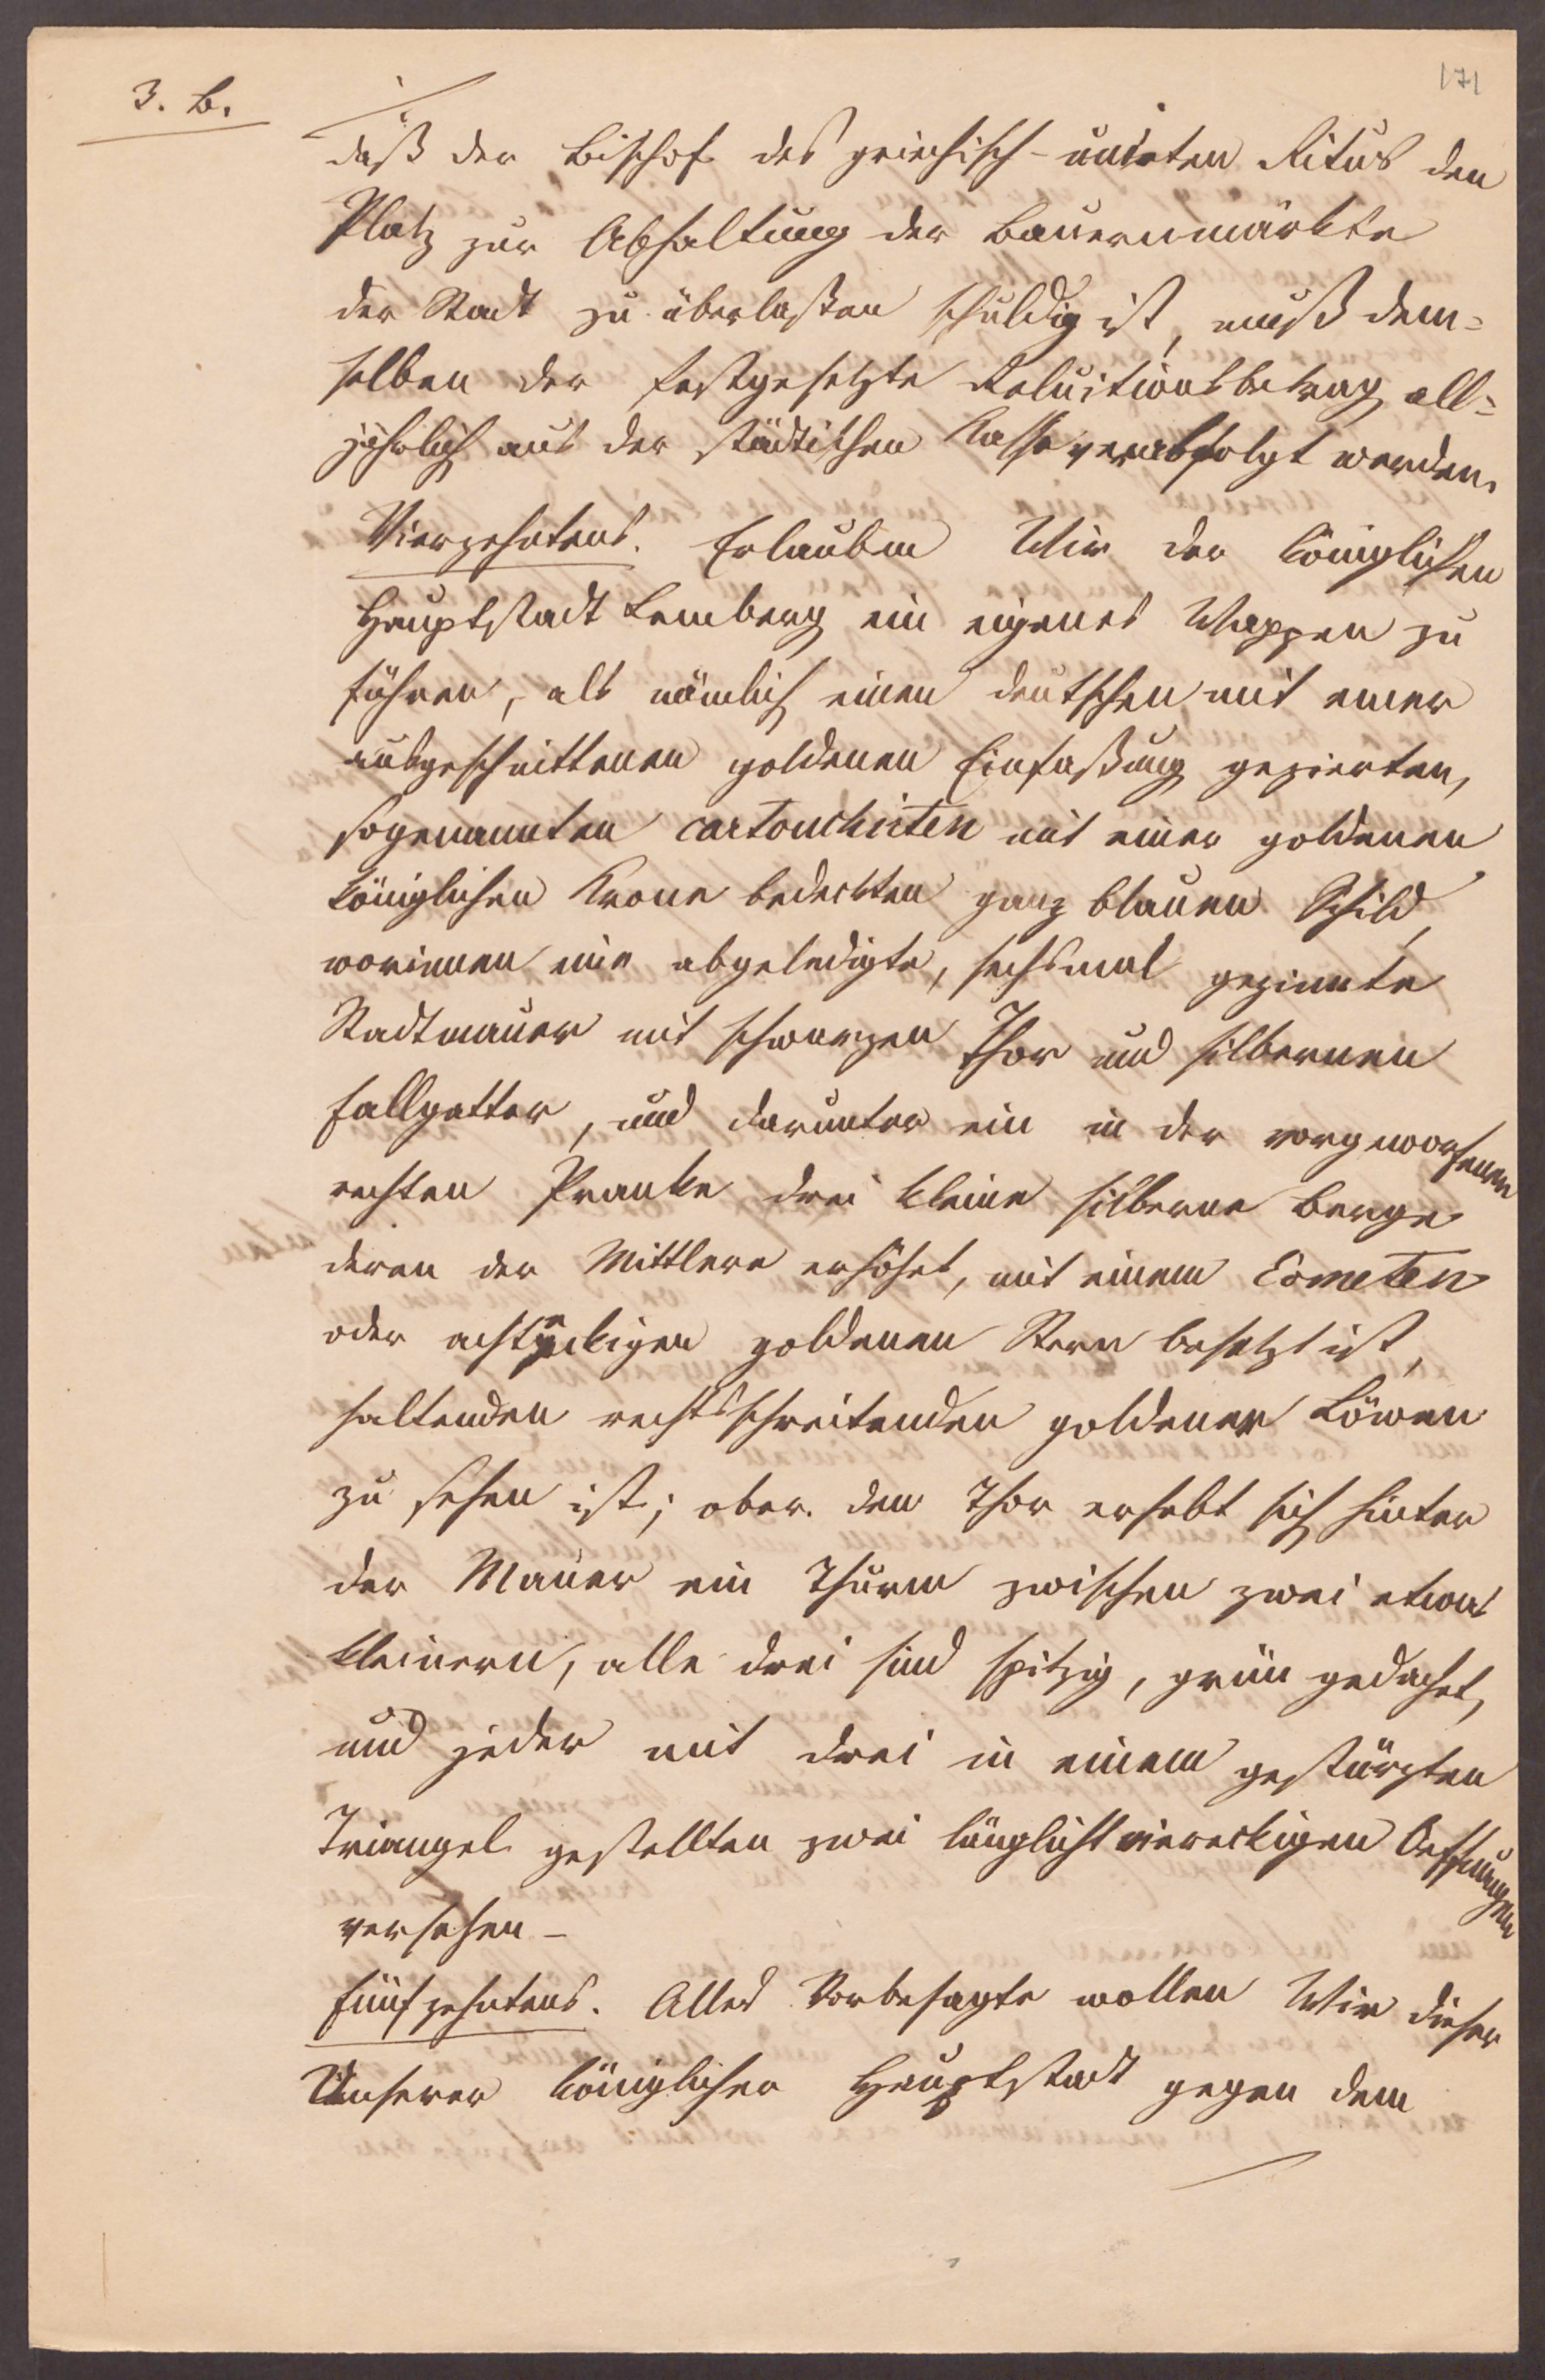 171
3. B.
daß der Bischof des griechisch-unirten Ritus den
Platz zur Abhaltung der Bauernmärkte
der Stadt zu überlaßen schuldig ist, muß dem=
selben der festgesetzte Reluitionsbetrag all=
jährlich aus der städtischen Kasse verabfolgt werden.
Vierzehntens. Erlauben Wir der königlichen
Hauptstadt Lemberg ein eigenes Wappen zu
führen, als nämlich einen deutschen mit einer
ausgeschnittenen goldenen Einfaßung gezierten,
sogenannten cartouchirten mit einer goldenen
königlichen Krone bedeckten ganz blauen Schild,
worinnen eine abgeledigte, sechsmal gezinnte
Stadtmauer mit schwarzen Thor und silbernen
Fallgatter, und darunter ein in der vorgeworfenen
rechten Pranke drei kleine silberne Berge
deren der Mittlere erhöhet, mit einem Cometen
oder achteckigen goldenen Stern besetzt ist,
haltenden rechtsschreitenden goldener Löwen
zu sehen ist; ober den Thor erhebt sich hinter
der Mauer ein Thurm zwischen zwei etwas
kleinern, alle drei sind spitzig, grün gedachet,
und jeder mit drei in einem gestürzten
Triangel gestellten zwei länglicht viereckigen Oeffnungen
versehen –
Fünfzehntens. Alles Vorbesagte wollen Wir dieser
Unserer königlichen Hauptstadt gegen dem